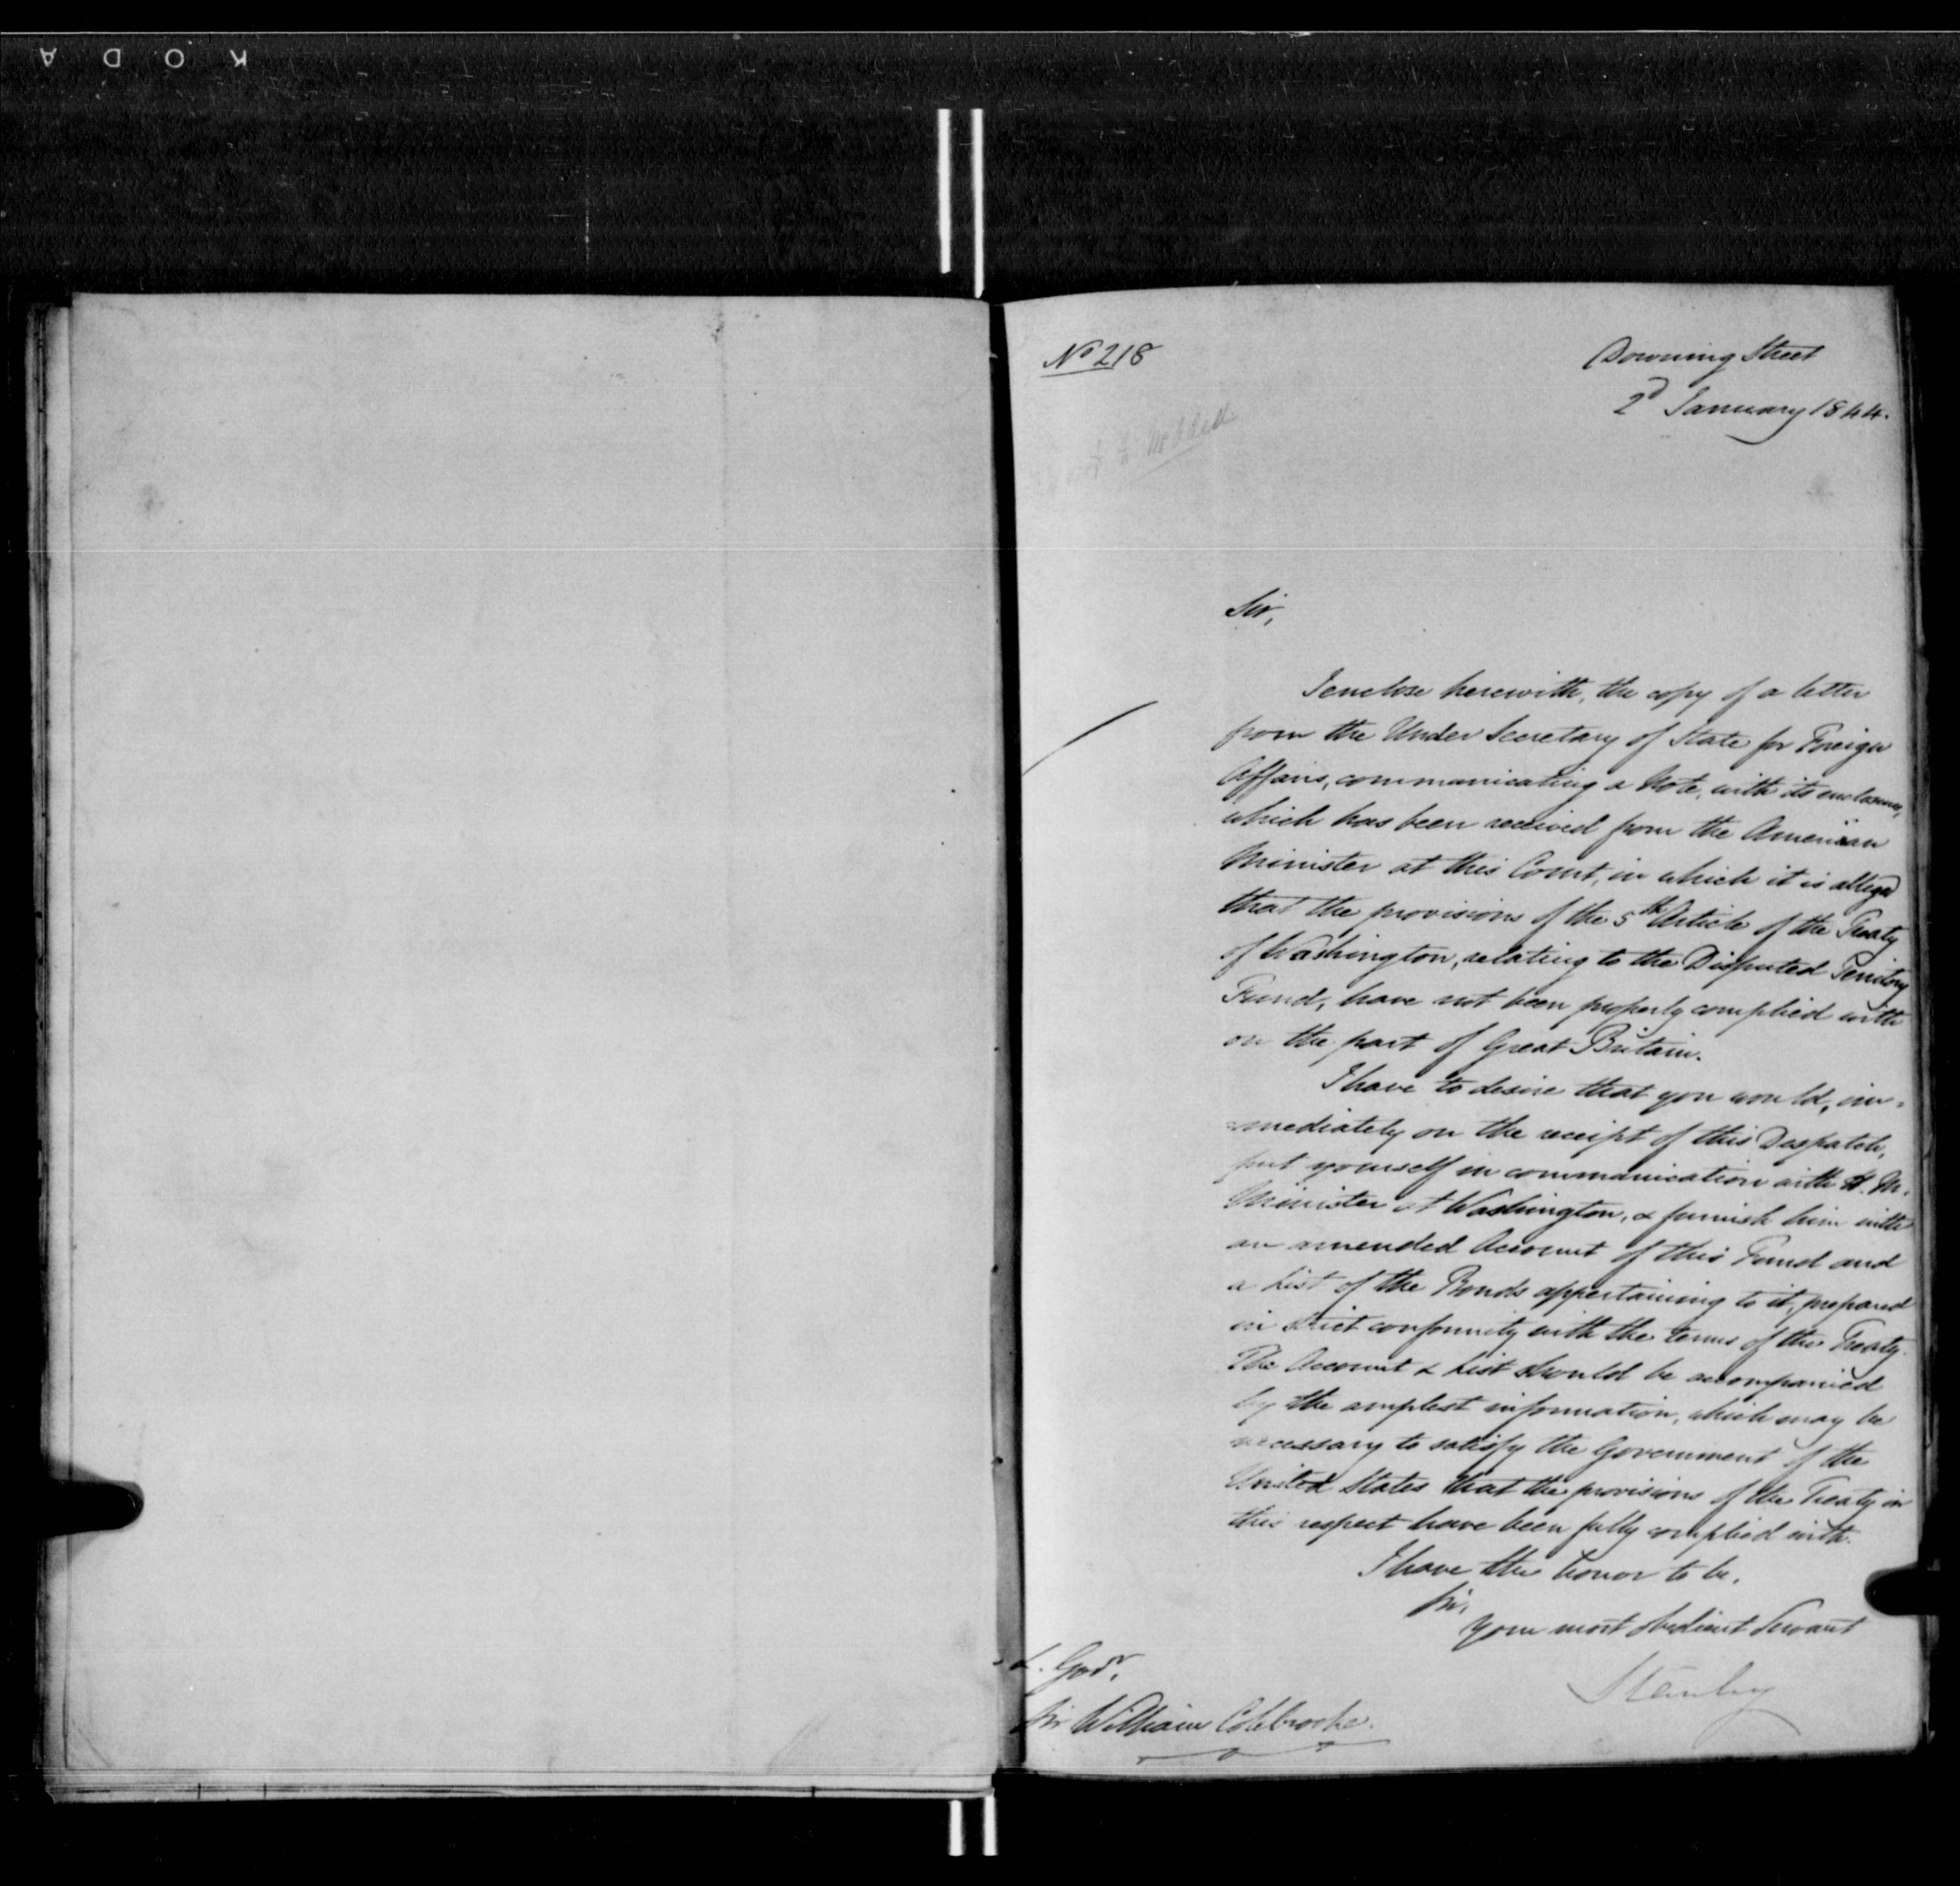 KODA
No 218
Downing Street
2d January 1844.
Sir,
I enclose herewith, the copy of a letter
from the Under Secretary of State for Foreign
Affairs, communicating a Note, with its enclosures,
which has been received from the American
Minister at this Court, in which it is alleged
that the provisions of the 5th Article of the Treaty
of Washington, relating to the Disputed Territory
Fund, have not been properly complied with
on the part of Great Britain.
I have to desire that you would, im-
mediately on the receipt of this Despatch,
put yourself in communication with H. M.
Minister at Washington, & furnish him with
an amended Account of this Fund and
a List of the Bonds appertaining to it, prepared
in strict conformity with the terms of the Treaty.
The Account & List should be accompanied
by the amplest information, which may be
necessary to satisfy the Government of the
United States that the provisions of the Treaty in
this respect have been fully complied with.
I have the honor to be,
Sir,
Your most obedient Servant
Stanley
L. Govr.
Sir William Colebrooke.